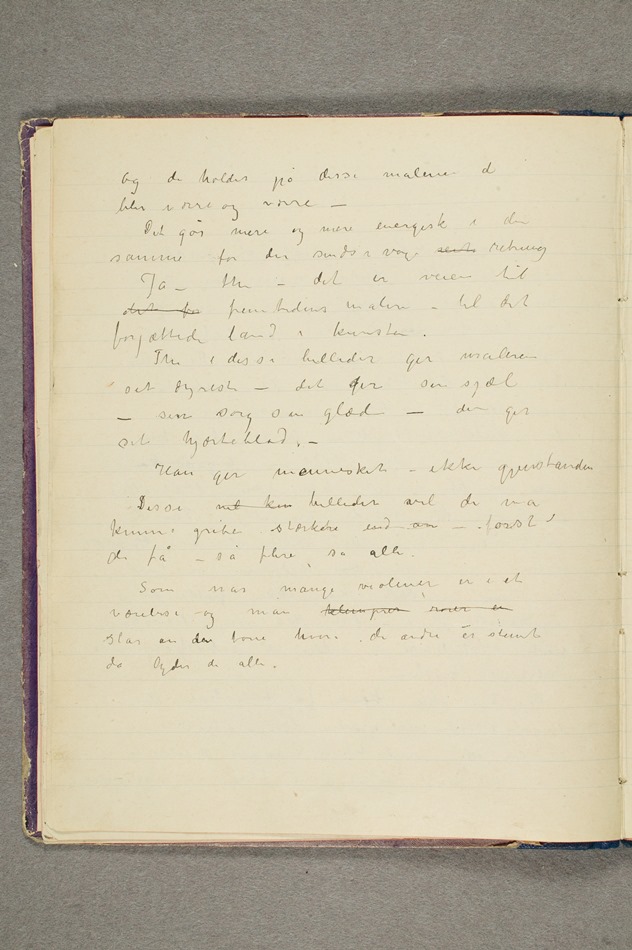 og de holder på disse malerne d
blir værre og værre —
Det går mere og mere energisk i den
samme for der sinds svage retning
Ja — thi — det er veien til
det fo fremtidens maleri — til det
forjættede land i kunsten.
Thi i disse billeder ger maleren
sit dyreste — det ger sin sjæl
— sin sorg sin glæd — den ger
sit hjærteblod. —
Han ger mennesket — ikke gjenstanden
Disse billeder vil de må
kunne gribe stærkere end — først
de få — så flere, så alle.
Som når mange violiner er i et
værelse og man
slår an den tone hvori de andre er stemt
da lyder de alle.